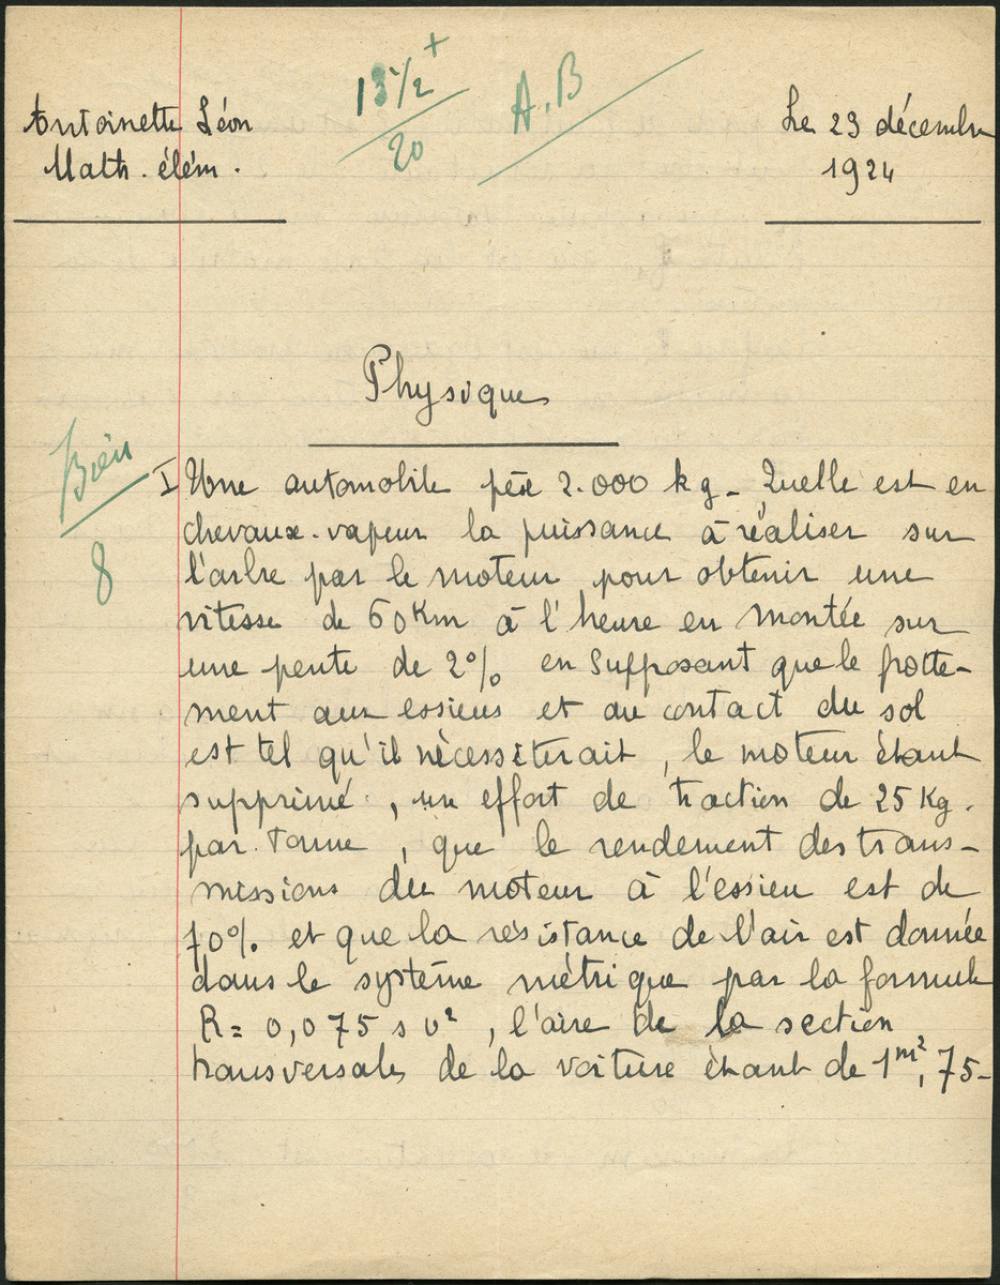 Antoinette Léon
Math. élém.
13 1/2 +
20
A.B
Le 23 décembre
1924
Physique
Bien
8
I Une automobile pèse 2.000 kg. Quelle est en
chevaux-vapeur la puissance à réaliser sur
l'arbre par le moteur pour obtenir une
vitesse de 60 Km à l'heure en montée sur
une pente de 2% en supposant que le frotte-
ment aux essieus et au contact du sol
est tel qu'il nécessiterait, le moteur étant
supprimé, un effort de traction de 25 Kg.
par tonne, que le rendement des trans-
missions du moteur à l'essieu est de
70% et que la résistance de l'air est donnée
dans le système métrique par la formule
R = 0,075 s v², l'aire de la section
transversale de la voiture étant de 1m²,75-